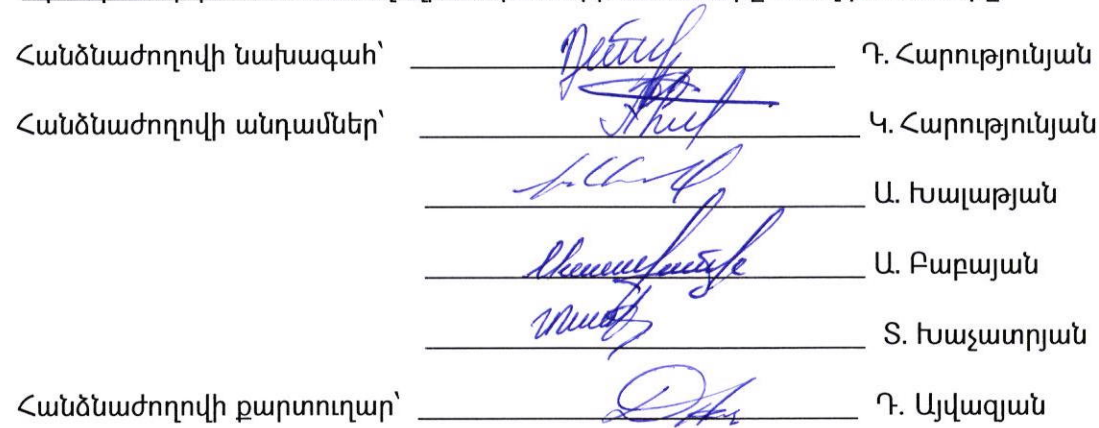 Հանձնաժողովի նախագահ՝ Դ. Հարությունյան
Հանձնաժողովի անդամներ՝ Կ. Հարությունյան
Ա. Խալաթյան
Ա. Բաբայան
Տ. Խաչատրյան
Հանձնաժողովի քարտուղար՝ Դ. Այվազյան